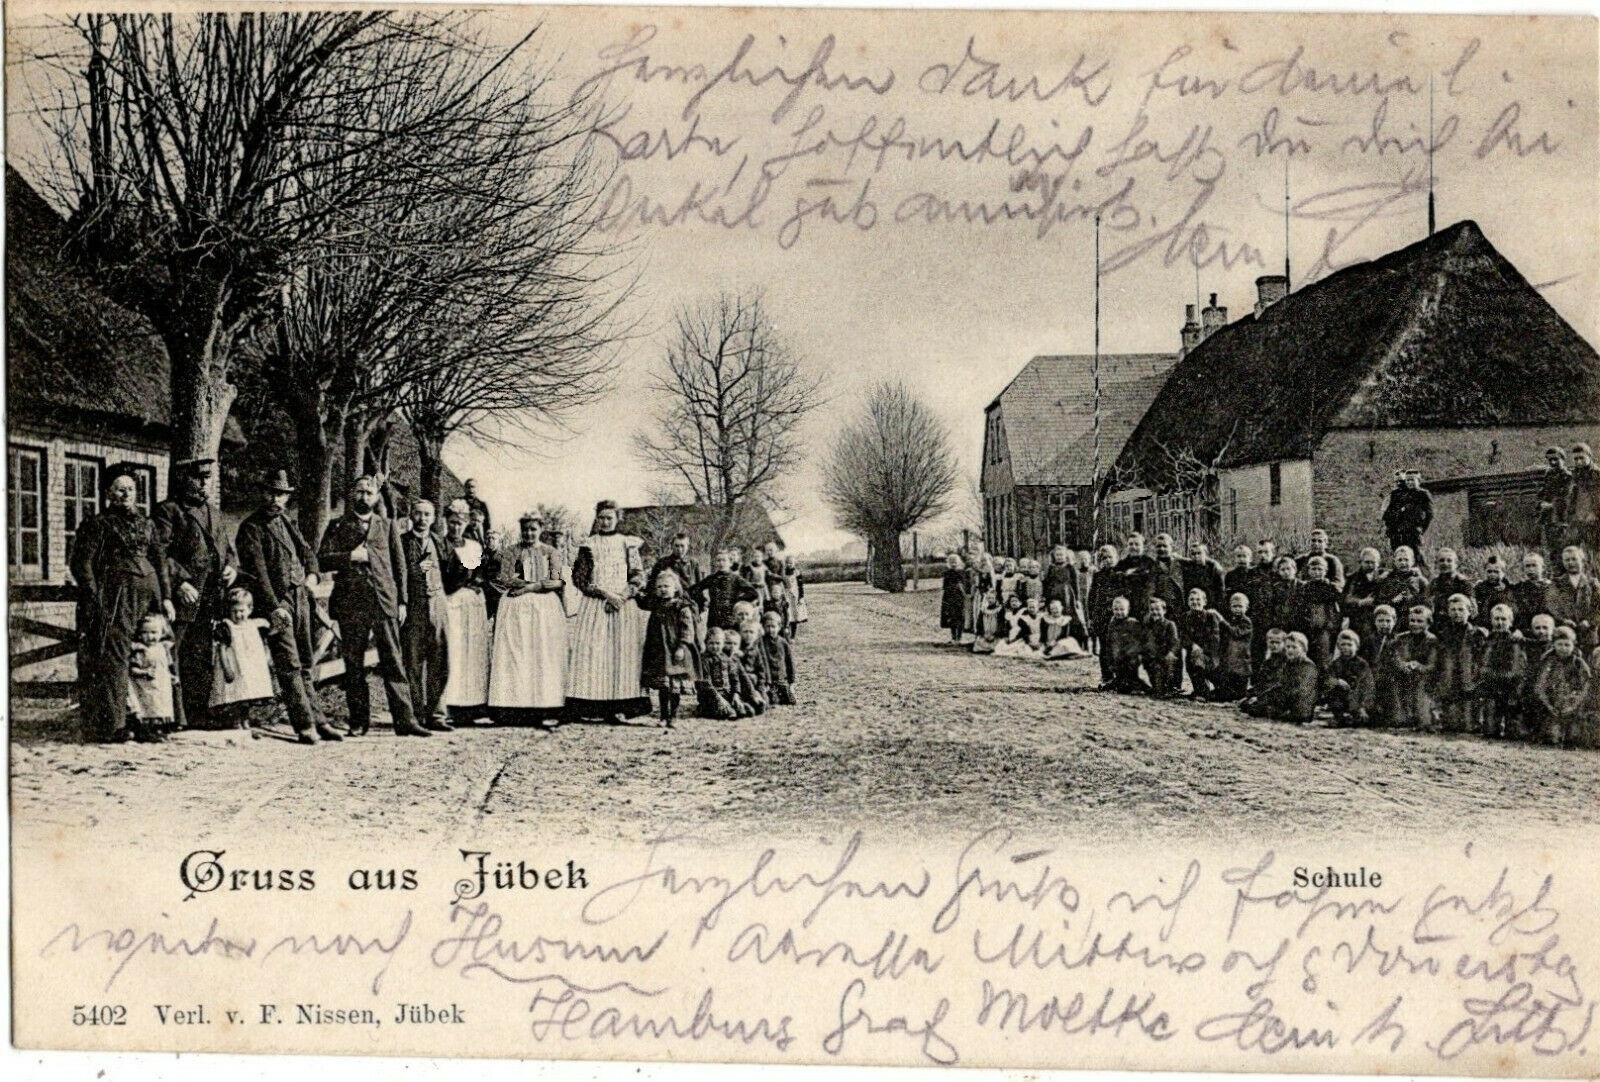 Herzlichen Dank für deine l.
Karte, hoffentlich hast du dich bei
Onkel gut amüsirt.
Dein
Gruss aus Jübek
Schule
Herzlichen Gruß, ich fahre jetzt
weiter nach Husum! Adresse Mittwoch & Donnerstag
Hamburg Graf Moltke Dein
5402 Verl. v. F. Nissen, Jübek